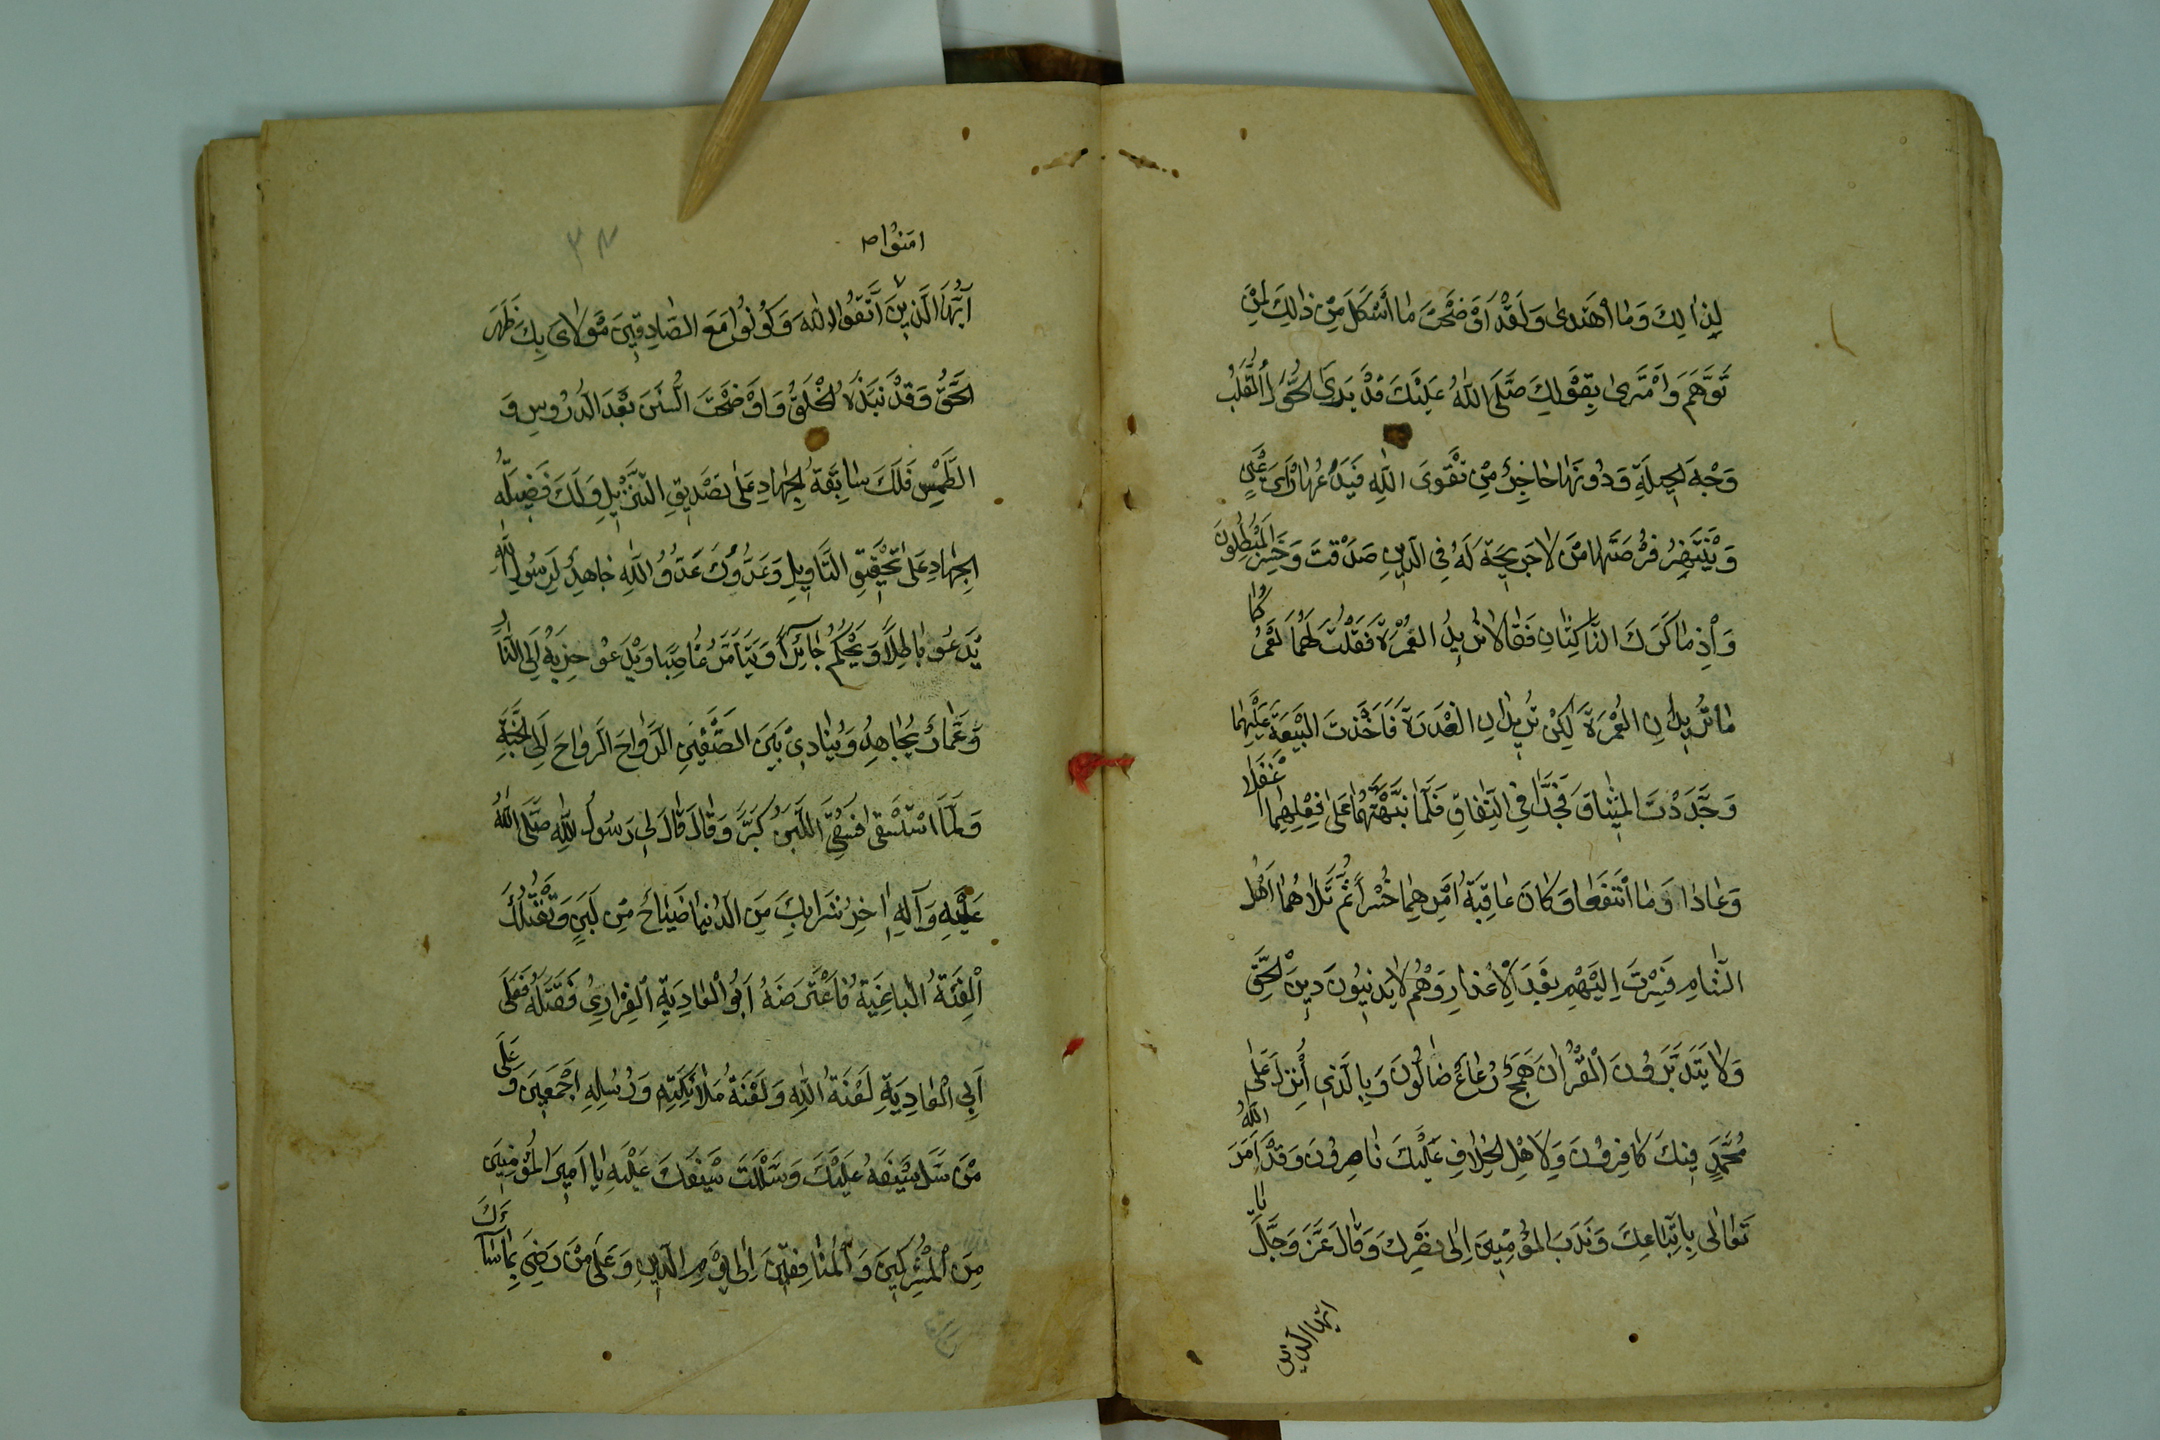 لِذٰلِكَ وَمَا اهْتَدٰى وَلَقَدْ اَوْضَحْتَ مَا اَشْكَلَ مِنْ ذٰلِكَ لِمَنْ
تَوَهَّمَ وَامْتَرٰى بِقَوْلِكَ صَلَّى اللّٰهُ عَلَيْكَ قَدْ يَرَى الْحُوَّلُ الْقُلَّبُ
وَجْهَ الْحِيلَةِ وَدُونَهَا حَاجِزٌ مِنْ تَقْوَى اللّٰهِ فَيَدَعُهَا رَاْىَ عَيْنٍ
وَيَنْتَهِزُ فُرْصَتَهَا مَنْ لَا حَرِيجَةَ لَهُ فِي الدِّينِ صَدَقْتَ وَخَسِرَ الْمُبْطِلُونَ
وَاِذْ مَاكَرَكَ النَّاكِثَانِ فَقَالَا نُرِيدُ الْعُمْرَةَ فَقُلْتَ لَهُمَا لَعَمْرُكُمَا
مَا تُرِيدَانِ الْعُمْرَةَ لٰكِنْ تُرِيدَانِ الْغَدْرَةَ فَاَخَذْتَ الْبَيْعَةَ عَلَيْهِمَا
وَجَدَّدْتَ الْمِيثَاقَ فَجَدَّا فِي النِّفَاقِ فَلَمَّا نَبَّهْتَهُمَا عَلَى فِعْلِهِمَا اَغْفَلَا
وَعَادَا وَمَا انْتَفَعَا وَكَانَ عَاقِبَةُ اَمْرِهِمَا خُسْرًا ثُمَّ تَلَاهُمَا اَهْلُ
الشَّامِ فَسِرْتَ اِلَيْهِمْ بَعْدَ الْاِعْذَارِ وَهُمْ لَا يَدِينُونَ دِينَ الْحَقِّ
وَلَا يَتَدَبَّرُونَ الْقُرْاٰنَ هَمَجٌ رَعَاعٌ ضَالُّونَ وَبِالَّذِي اُنْزِلَ عَلٰى
مُحَمَّدٍ فِيكَ كَافِرُونَ وَلِاَهْلِ الْخِلَافِ عَلَيْكَ نَاصِرُونَ وَقَدْ اَمَرَ اللّٰهُ
تَعَالٰى بِاتِّبَاعِكَ وَنَدَبَ الْمُؤْمِنِينَ اِلٰى نَصْرِكَ وَقَالَ عَزَّ وَجَلَّ يَا
اَيُّهَا الَّذِينَ
امَنُوا صـ
اَيُّهَا الَّذِينَ اتَّقُوا اللّٰهَ وَكُونُوا مَعَ الصَّادِقِينَ مَوْلَايَ بِكَ ظَهَرَ
الْحَقُّ وَقَدْ نَبَذَهُ الْخَلْقُ وَاَوْضَحْتَ السُّنَنَ بَعْدَ الدُّرُوسِ وَ
الطَّمْسِ فَلَكَ سَابِقَةُ الْجِهَادِ عَلٰى تَصْدِيقِ التَّنْزِيلِ وَلَكَ فَضِيلَةُ
الْجِهَادِ عَلٰى تَحْقِيقِ التَّاْوِيلِ وَعَدُوُّكَ عَدُوُّ اللّٰهِ جَاحِدٌ لِرَسُولِ اللّٰهِ
يَدْعُو بَاطِلًا وَيَحْكُمُ جَائِرًا وَيَتَاَمَّرُ غَاصِبًا وَيَدْعُو حِزْبَهُ اِلَى النَّارِ
وَعَمَّارٌ يُجَاهِدُ وَيُنَادِي بَيْنَ الصَّفَّيْنِ الرَّوَاحَ الرَّوَاحَ اِلَى الْجَنَّةِ
وَلَمَّا اسْتَسْقٰى فَسُقِيَ اللَّبَنَ كَبَّرَ وَقَالَ قَالَ لِي رَسُولُ اللّٰهِ صَلَّى اللّٰهُ
عَلَيْهِ وَآلِهِ اٰخِرُ شَرَابِكَ مِنَ الدُّنْيَا ضَيَاحٌ مِنْ لَبَنٍ وَتَقْتُلُكَ
الْفِئَةُ الْبَاغِيَةُ فَاعْتَرَضَهُ اَبُو الْعَادِيَةِ الْفَزَارِيُّ فَقَتَلَهُ فَعَلٰى
اَبِي الْعَادِيَةِ لَعْنَةُ اللّٰهِ وَلَعْنَةُ مَلَائِكَتِهِ وَرُسُلِهِ اَجْمَعِينَ وَعَلٰى
مَنْ سَلَّ سَيْفَهُ عَلَيْكَ وَسَلَلْتَ سَيْفَكَ عَلَيْهِ يَا اَمِيرَ الْمُؤْمِنِينَ
مِنَ الْمُشْرِكِينَ وَالْمُنَافِقِينَ اِلٰى يَوْمِ الدِّينِ وَعَلٰى مَنْ رَضِيَ بِمَا سَآءَكَ